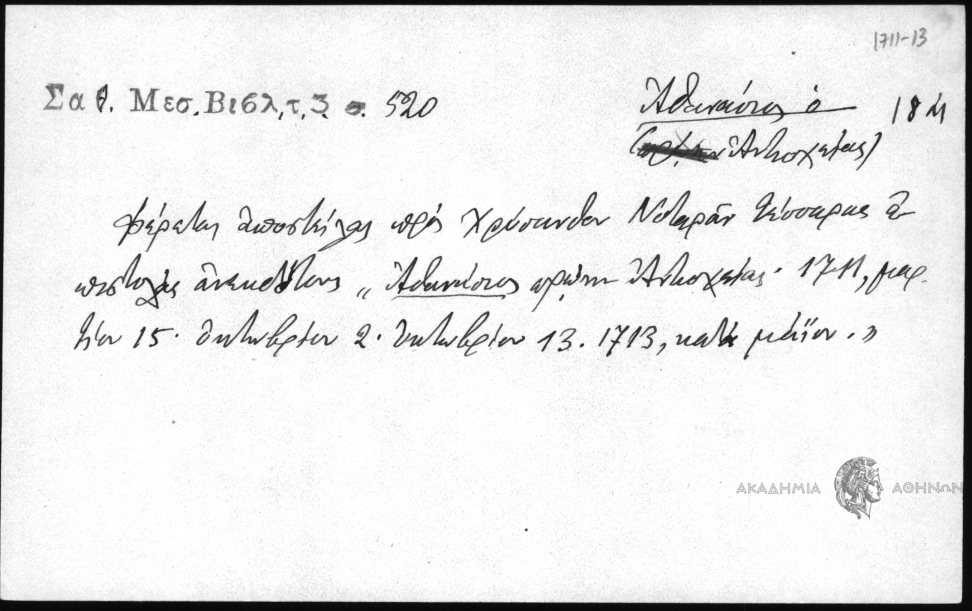 1711-13
Σαθ. Μεσ. Βιβλ, τ, 3. σ. 520
Ἀθανάσιος ὁ
(Ἀντιοχείας)
φέρεται ἀποστείλας πρὸς Χρύσανθον Νοταρᾶν τέσσαρας ἐ
πιστολὰς ἀνεκδότους „Ἀθανάσιος πρώην Ἀντιοχείας· 1711, μαρ.
τίου 15· ὀκτωβρίου 2· ὀκτωβρίου 13. 1713, κατὰ μάϊον."
ΑΚΑΔΗΜΙΑ ΑΘΗΝΩΝ